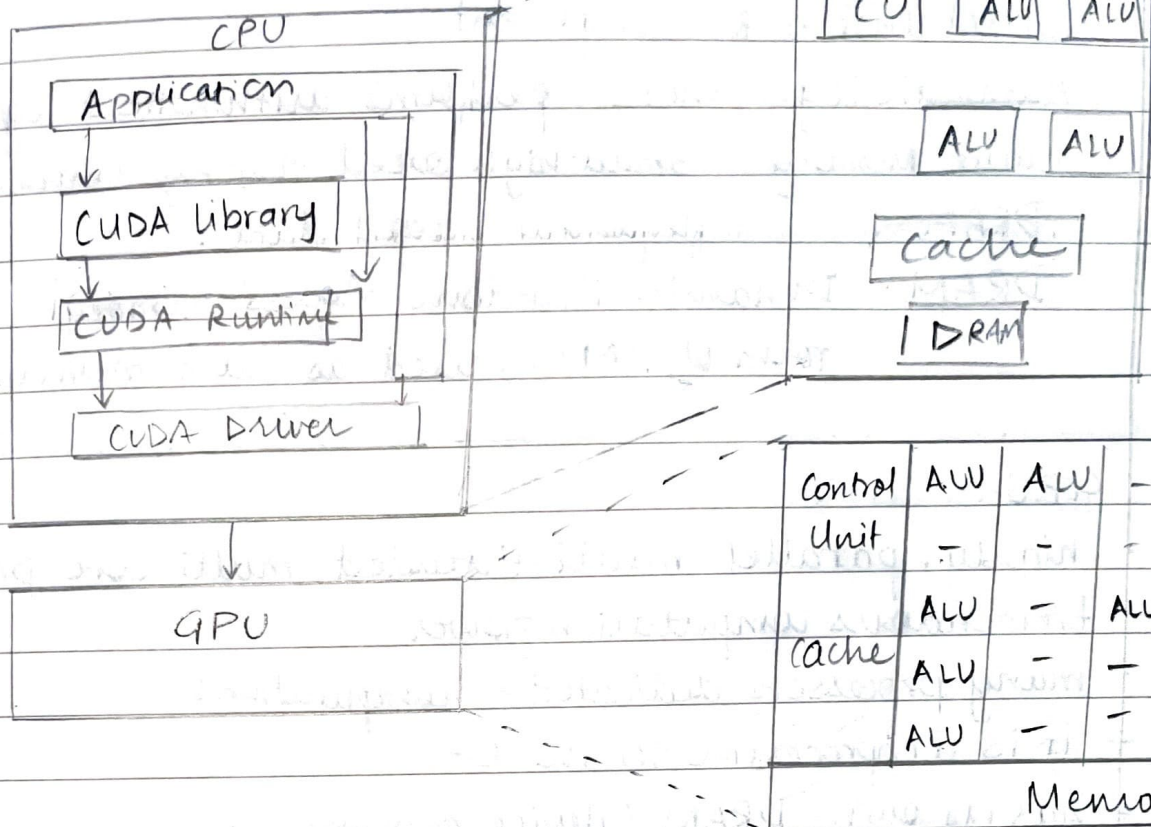 CPU
Application
CUDA library
CUDA Runtime
CUDA Driver
GPU
CU ALU ALU
ALU ALU
Cache
DRAM
Control ALU ALU -
Unit - - -
ALU - ALU
Cache ALU - -
ALU - -